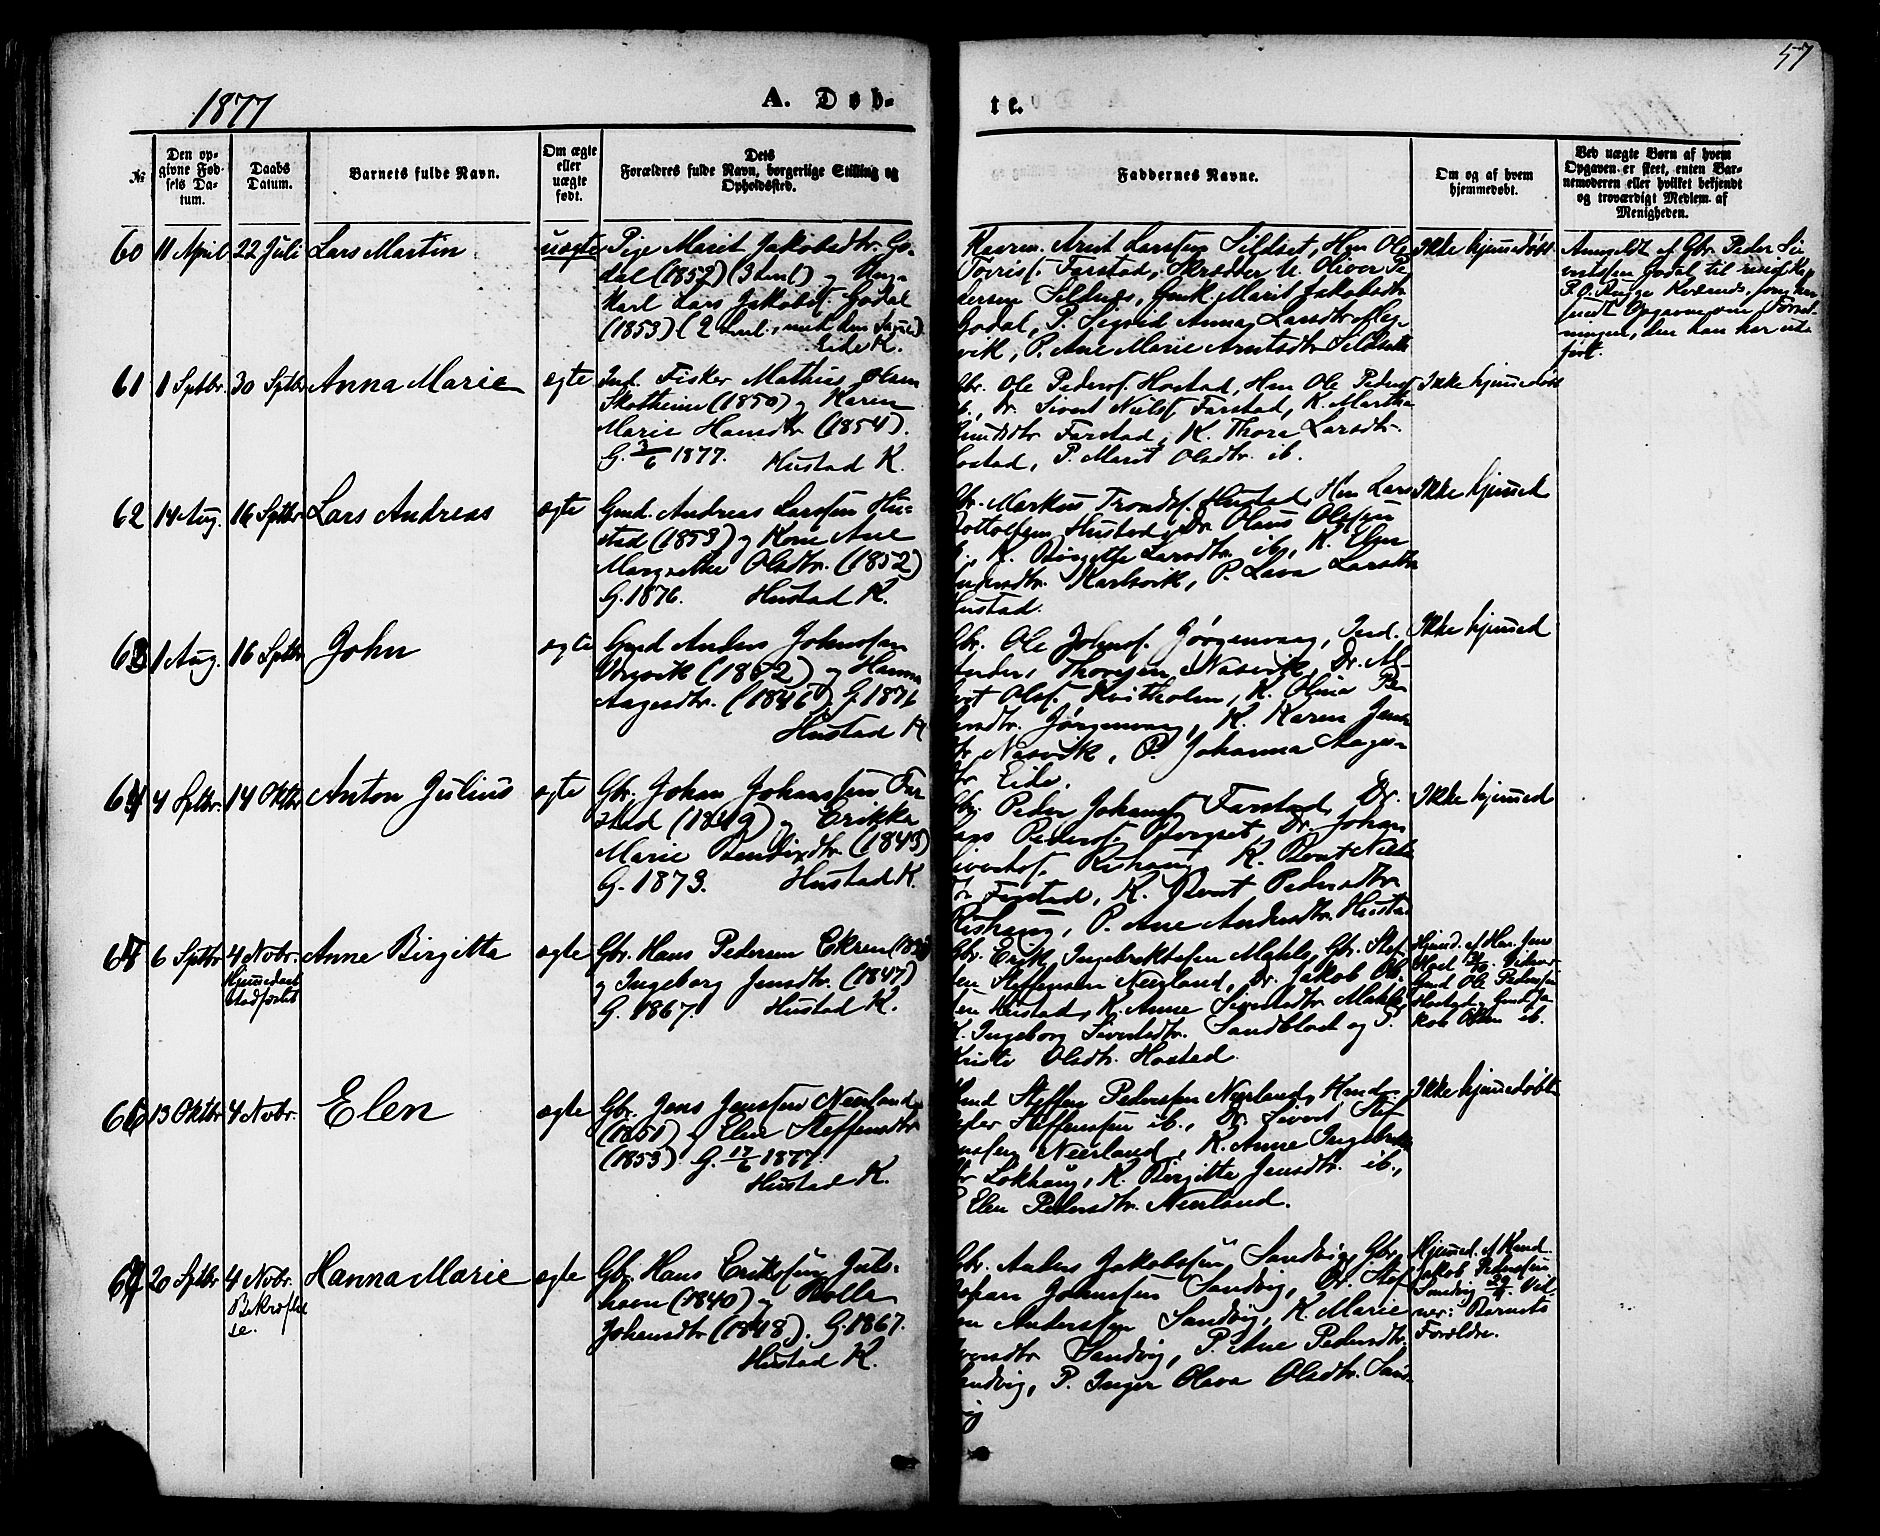 57
1877
A. Døb-
te.
№
Den op-
givne Fød-
sels Da-
tum.
Daabs
Datum.
Barnets fulde Navn.
Om ægte
eller
uægte
født.
Dets
Forældres fulde Navn, borgerlige Stilling og
Opholdssted.
Faddernes Navne.
Om og af hvem
hjemmedøbt.
Ved uægte Børn af hvem
Opgaven er skeet, enten Bar-
nemoderen eller hvilket bekjendt
og troværdigt Medlem af
Menigheden.
60 11 April 22 Juli Lars Martin uægte
Pige Marit Jakobsdtr. Go-
dal (1852) (3 barn) og Ung-
karl Lars Jakobs. Godal
(1853) (2 barn, med den samme)
Eide K.
Arnt Larssen Sildset, Hm Ole
Torriss. Farstad, Skrædder U. Oliver Pe-
dersen Sildnes, Marit Jakobsdtr
Godal, P. Sigrid Anna Larsdtr
vik, P. Ane Marie Arntsdtr Sildset
Ikke hjemmedøbt
Anmeldt af Gbr. Peder Si-
vertsen Godal til
61 1 Sptbr. 30 Sptbr Anna Marie ægte
Ind. Fisker Mathias Olsen
Skotheim (1850) og Karen
Marie Hansdtr (1854).
G. 3/6 1877. Hustad K.
Gbr. Ole Peders. Hostad, Hm Ole Peders.
ib., Dr. Sivert Niels. Farstad, K. Martha
Knudsdtr Farstad, K. Thora Larsdtr.
Hostad, P. Marit Olsdtr. ib.
Ikke hjemmedøbt
62 14 Aug. 16 Sptbr Lars Andreas ægte
Gmd. Andreas Larssen Hu-
stad (1853) og Kone Ane
Margrethe Olsdtr. (1852)
G. 1876. Hustad K.
Gbr. Markus Tronds. Hustad, Hm Lars
Bottolfsen Hustad, Dr. Olaus Olssen
ib., K. Birgitte Larsdtr. ib., K. Elen
Andersdtr. Karlsvik, P. Lava Larsdtr
Hustad.
Ikke hjemmed
63 1 Aug. 16 Sptbr John ægte
Gmd Anders Johnssen
Vevik (1852) og Hanna
Aagesdtr. (1846). G. 1871
Hustad K
Gbr. Ole Johns. Jørgenvaag, Ind.
Anders Thoresen Nasvik, Dr. Al-
bert Ols. Kvitholm, K. Olina Pe-
dersdtr. Jørgenvaag, K. Karen Jens-
dtr Nasvik, P. Johanna Aages-
dtr Eide.
Ikke hjemmed
64 4 Sptbr. 14 Oktbr Anton Julius ægte
Gbr. Johan Johanssen Far-
stad (1849) og Erikka
Marie Bendixdtr. (1843)
G. 1873. Hustad K.
Gbr Peder Johans. Farstad, Dr.
Lars Peders. Dr. Johan
Siverts. Rishaug, K. Beret Niels-
dtr. Farstad, K. Beret Pedersdtr.
Rishaug, P. Ane Andersdtr. Hustad
Ikke hjemmed
65 6 Sptbr 4 Nobr. Anne Birgitta ægte
Hjemmedaab
stadfæstet
Gbr. Hans Pedersen Ekren
og Ingeborg Jensdtr. (1847)
G. 1867. Hustad K.
Gbr. Erik Ingebrektssen Mahle, Gbr. Stef-
fen Steffensen Neerland, Dr. Jakob Ol-
sen Hustad, K. Anne Sivertsdtr. Mahle,
K. Ingeborg Sivertsdtr. Sandblad og P.
Kristi Olsdtr. Hostad.
Hjemmd. af Hm. Jens
Gmd Ole Pederssen
Hostad, Gmd Ja-
kob Olsen ib.
66 13 Oktbr 4 Nobr. Elen ægte
Gbr. Jens Jenssen Neerland
(1851) og Elen Steffensdtr.
(1853). G. 17/6 1877.
Hustad K.
Kmd Steffen Pederssen Neerland, Hmd
Peder Steffenssen ib., Dr. Sivert Stef-
fenssen Neerland, K. Anne Ingebrekts-
dtr Lokhaug, K. Birgitta Jensdtr. ib.,
P. Elen Pedersdtr. Neerland.
Ikke hjemmedøbt
67 20 Sptbr 4 Nobr. Hanna Marie ægte
Bekræftel-
se.
Gbr. Hans Erikssen Juls-
havn (1840) og
Johansdtr (1848). G. 1867.
Hustad K.
Gbr. Anders Jakobssen Sandvig, Gbr.
Johan Johnssen Sandvig, Dr. Stef-
fen Anderssen Sandvig, K. Marie
Sandvig, P. Ane Pedersdtr.
Sandvig, P. Inger Olava Olsdtr. Sand-
vig
Hjemmed. af Kmd
Jakob Pederssen
Sandvig. Vid-
ner: Barnets
Forældre.